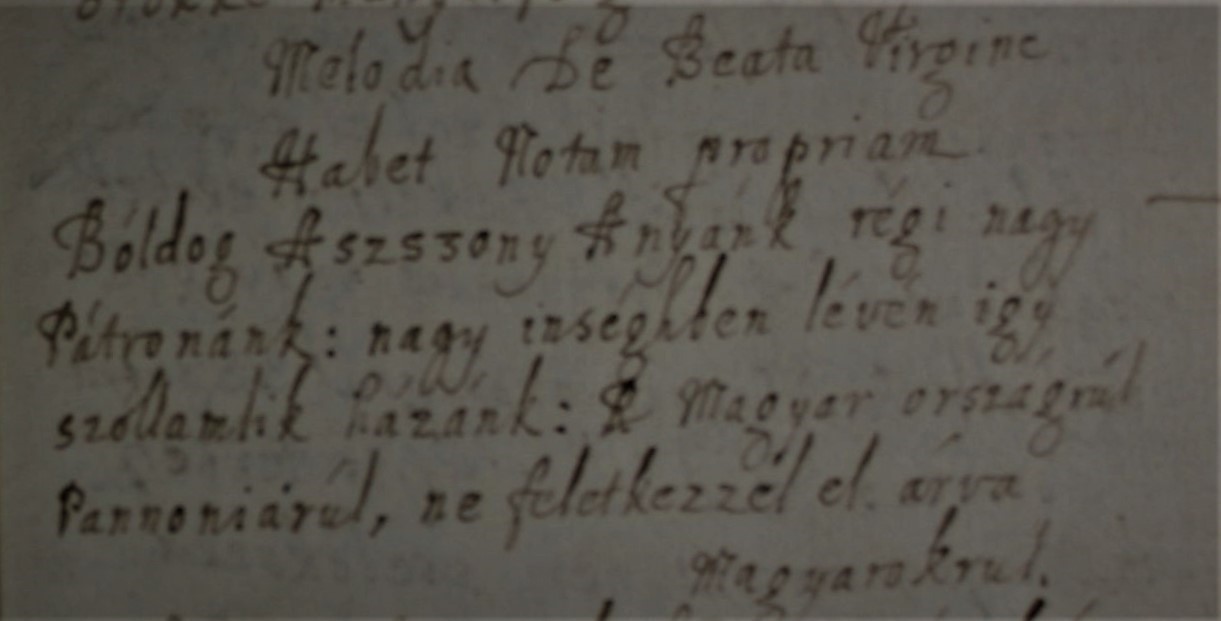 Melodia De Beata Virgine
Habet Notam propriam
Bóldog Aszszony Anyánk régi nagy
Pátronánk: nagy inséghben lévén igÿ
szóllamlik házánk: R Magyar országrúl
Pannoniárúl, ne feletkezzél el árva
Magyarokrul.